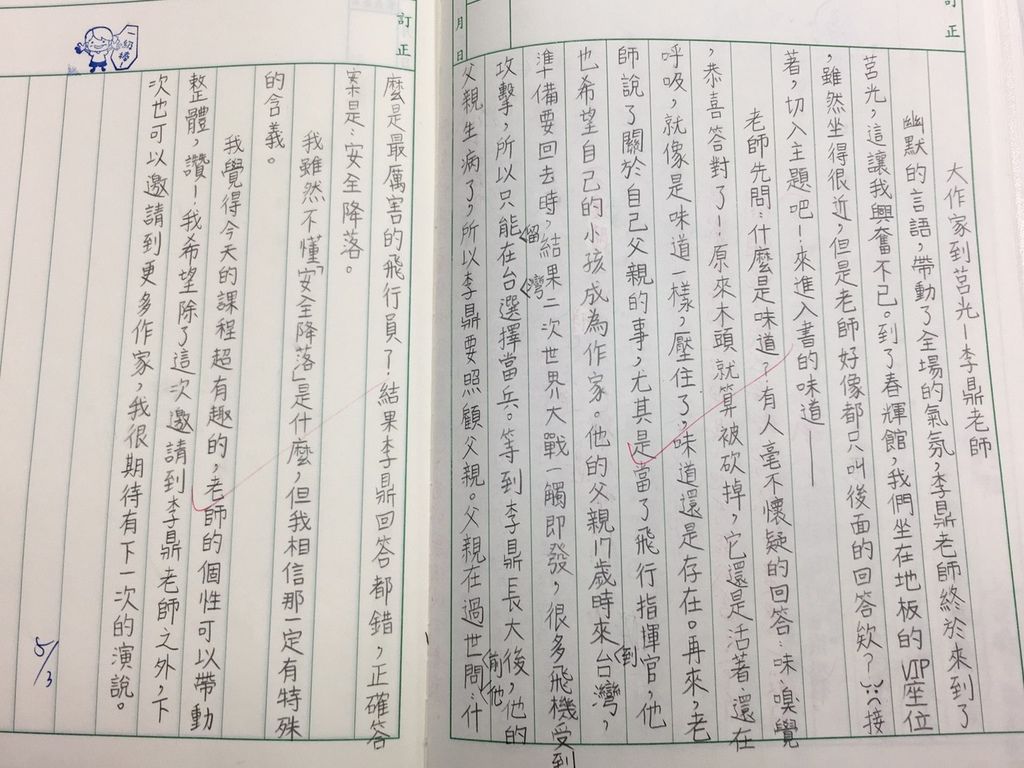 訂正
月 日
大作家到莒光—李鼎老師
幽默的言語,帶動了全場的氣氛,李鼎老師終於來到了
莒光,這讓我興奮不已。到了春輝館,我們坐在地板的VIP座位
,雖然坐得很近,但是老師好像都只叫後面的回答欸?接
著,切入主題吧!來進入書的味道——
老師先問:什麼是味道?有人毫不懷疑的回答:味、嗅覺
,恭喜答對了!原來木頭就算被砍掉,它還是活著,還在
呼吸,就像是味道一樣,壓住了,味道還是存在。再來,老
師說了關於自己父親的事,尤其是當了飛行指揮官,他
也希望自己的小孩成為作家。他的父親17歲時來到台灣,
準備要回去時,結果二次世界大戰一觸即發,很多飛機受到
攻擊,所以只能留在台灣選擇當兵。等到李鼎長大後,他的
父親生病了,所以李鼎要照顧父親。父親在過世前他問:什
訂正
一級棒
麼是最厲害的飛行員?結果李鼎回答都錯,正確答
案是:安全降落。
我雖然不懂「安全降落」是什麼,但我相信那一定有特殊
的含義。
我覺得今天的課程超有趣的,老師的個性可以帶動
整體,讚!我希望除了這次邀請到李鼎老師之外,下
次也可以邀請到更多作家,我很期待有下一次的演說。
5/3